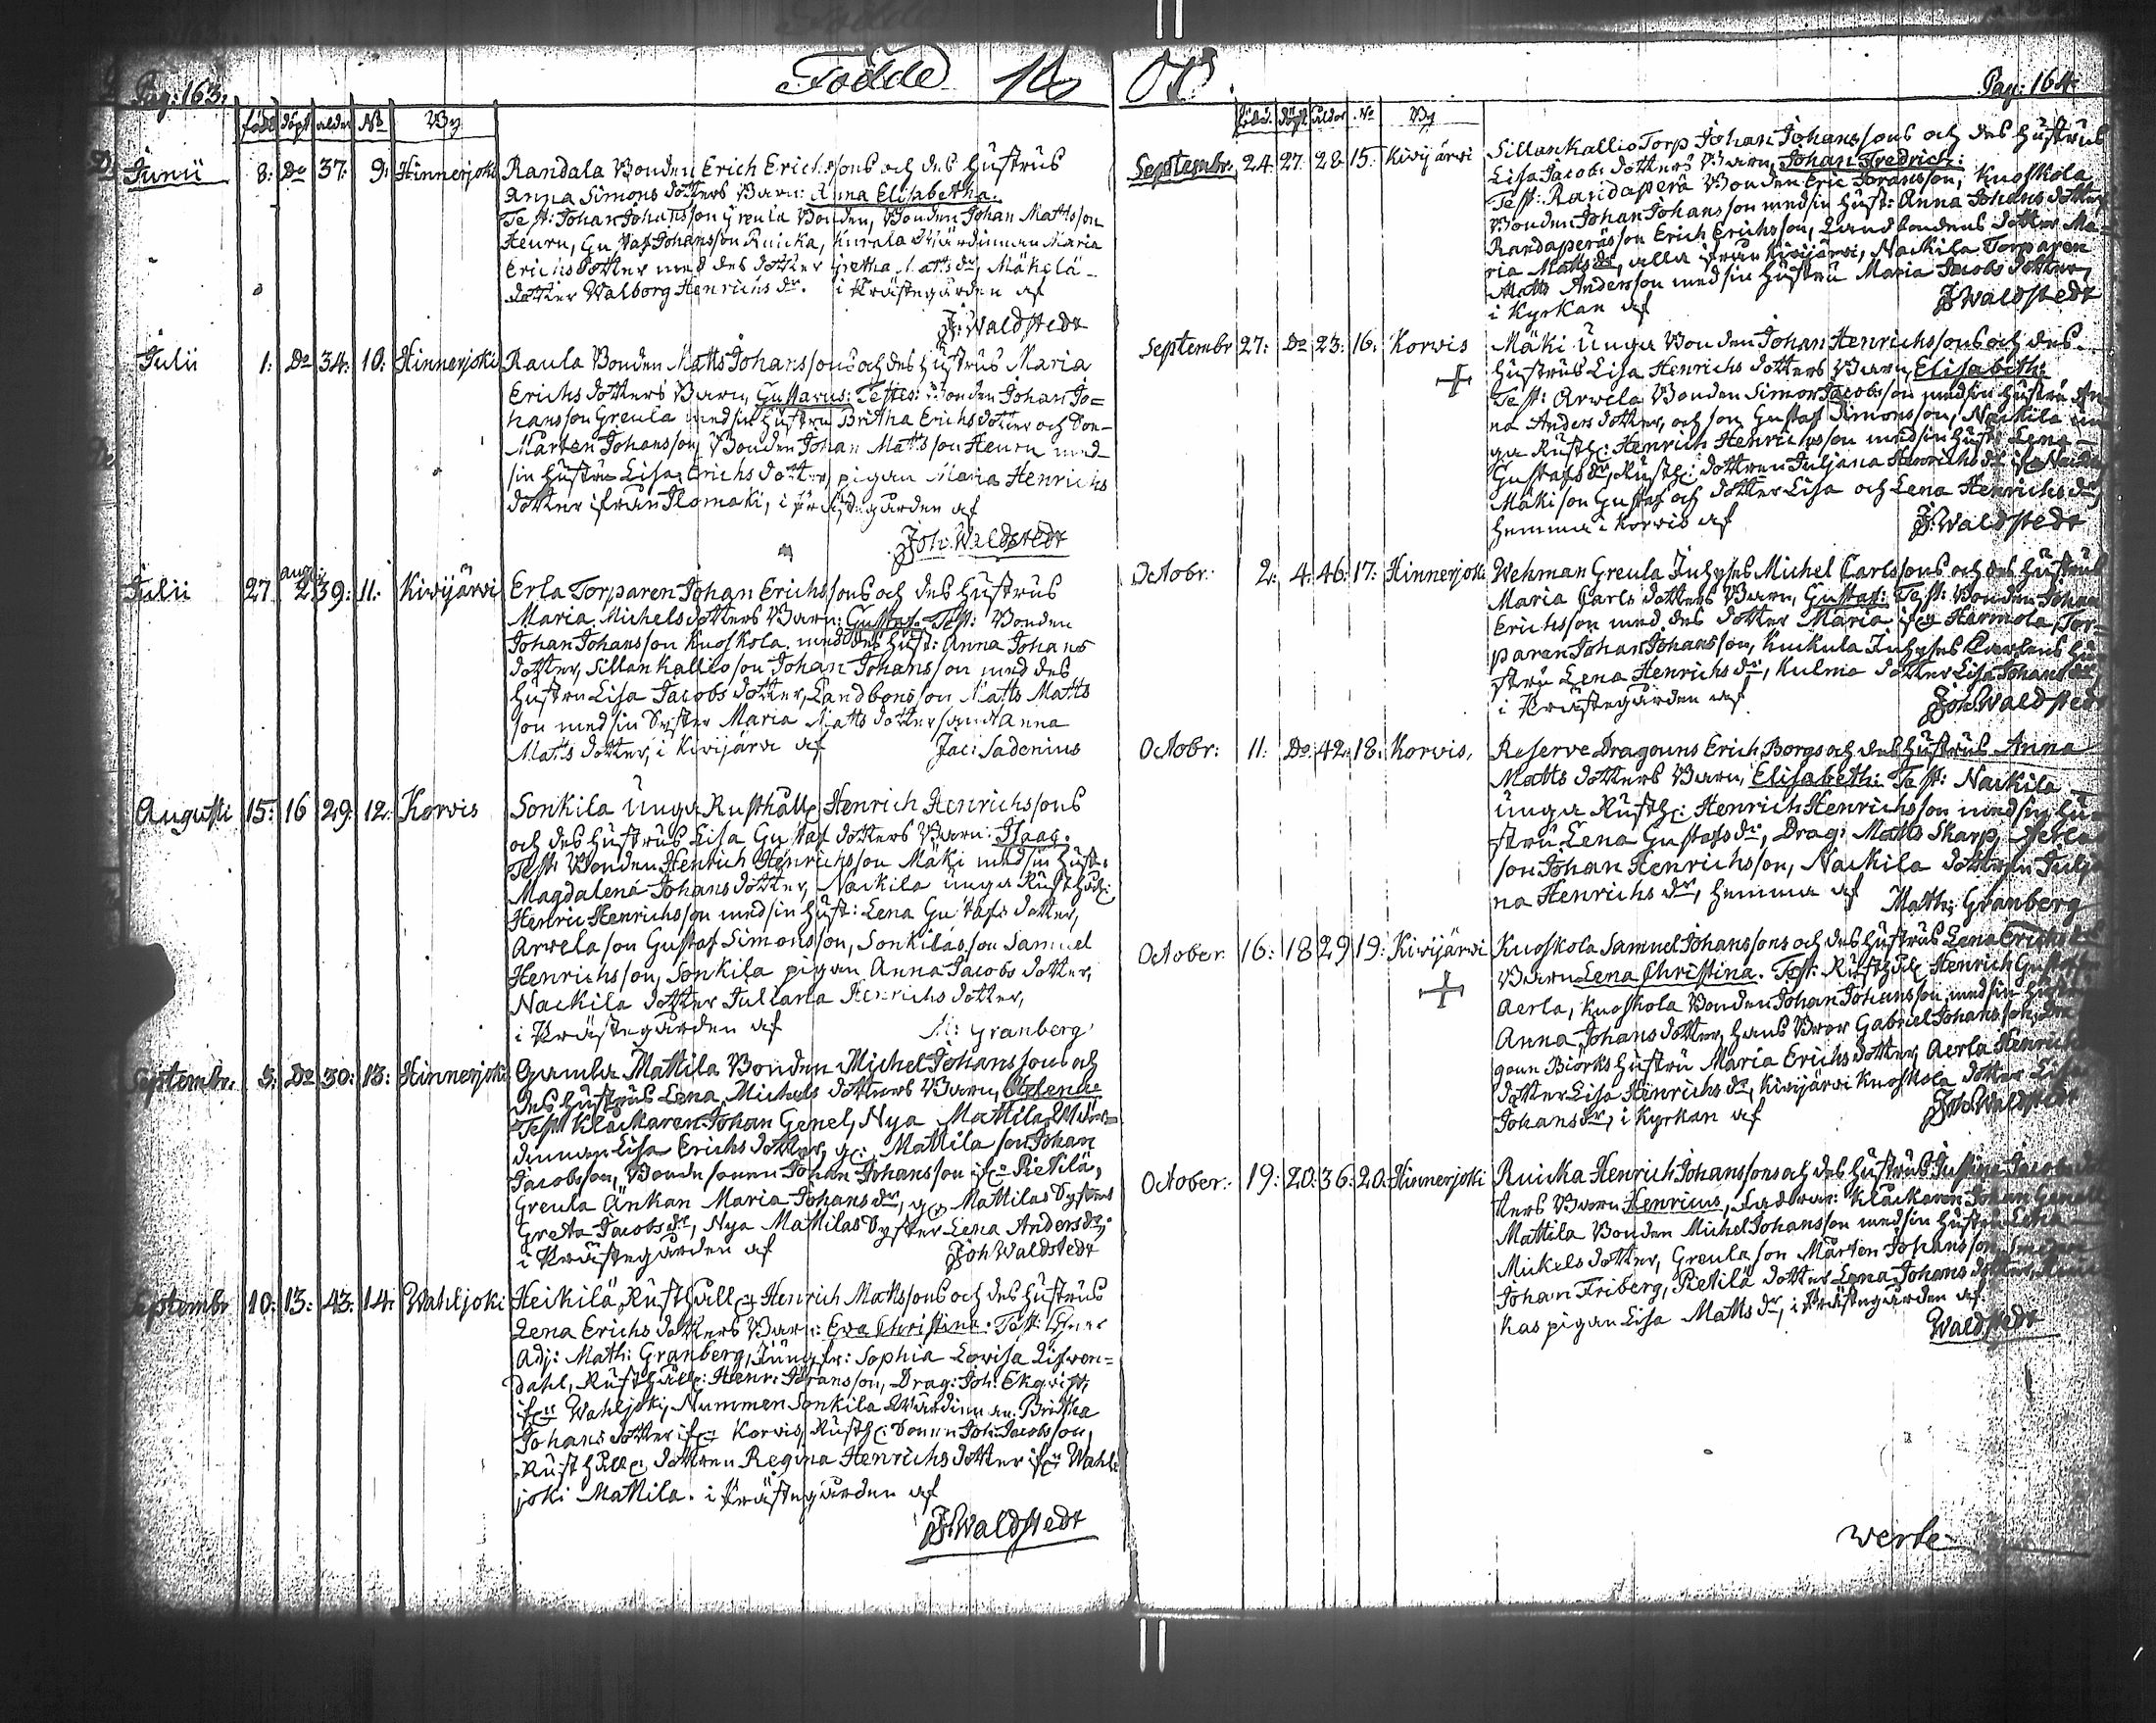 Pag: 163.
Födde
född döpt ålder No By
Junii 8: Do 37: 9: Hinnerjoki Randala Bonden Erich Erichssons och des hustrus
Anna Simons dotters Barn: Anna Elisabetha.
Test: Johan Johansson Greula Bonden, Bonden Johan Mattsson
Heuru, Gustaf Johansson Ruicka, Kurala Wärdinnan Maria
Erichs dotter med des dotter Gretha Matts dr, Mäkelä
dotter Walborg Henrichs dr. i Prästegården af
J: Waldstedt
Julii 1: Do 34: 10: Hinnerjoki Raula Bonden Matts Johanssons och des hustrus Maria
Erichs dotters Barn, Gustavus: Testes: Bonden Johan Jo=
hansson Greula med sin hustru Britha Erichs dotter och Son
Mårten Johansson, Bonden Johan Mattsson Heuru med
sin hustru Lisa Erichs dotter, pigan Maria Henrichs
dotter ifrån Ilomäki, i prästegården af
Joh: Waldstedt
Julii 27 aug: 2 39: 11: Kivijärvi Erla Torparen Johan Erichssons och des hustrus
Maria Michels dotters Barn: Gustaf. Test: Bonden
Johan Johansson Knoskola med des hust: Anna Johans
dotter, Sillankallio son Johan Johansson med des
hustru Lisa Jacobs dotter, Landbons son Matts Matts
son med sin Syster Maria Matts dotter samt Anna
Matts dotter, i Kivijärvi af Jac: Sadenius
Augusti 15: 16 29: 12: Korvis Sonkila Unga Rusthåll: Henrich Henrichssons
och des hustrus Lisa Gustaf dotters Barn: Isaac.
Test: Bonden Henrich Henrichsson Mäki med sin hust:
Magdalena Johans dotter, Nackila unga Rusthåll:
Henric Henrichsson med sin hust: Lena Gustafs dotter,
Arvela son Gustaf Simonsson, Sonkilas son Samuel
Henrichsson, Sonkila pigan Anna Jacobs dotter,
Nackila dotter Juliana Henrichs dotter,
i Prästegården af M: Granberg
Septembr. 3: Do 30: 13: Hinnerjoki Gamla Mattila Bonden Michel Johanssons och
des hustrus Lena Michels dotters Barn, Helena:
Test: Klåckaren Johan Genel, Nya Mattila Wär=
dinnan Lisa Erichs dotter, g: Mattila son Johan
Jacobsson, Bonde sonen Johan Johansson ifrn Pietilä,
Greula Änkan Maria Johans dr, g: Mattilas Syster
Greta Jacobs dr, Nya Mattilas Syster Lena Anders dr,
i Prästegården af Joh Waldstedt
Septembr 10: 13: 43: 14: Wahljoki Heikilä Rusthåll: Henrich Mattssons och des hustrus
Lena Erichs dotters Barn: Eva Christina. Test:
Adj: Math: Granberg, Jungfr: Sophia Lovisa
dahl, Rusthåll: Henr: Jöransson, Drag: Joh: Ekqvist,
ifrn Wahljoki, Nummen Sonkila Wärdinnan Britha
Johans dotter ifrn Korvis, Rusth: Sonen Joh: Jacobsson,
Rusthåll: dottren Regina Henrichs dotter ifrn Wahl
joki Mattila. i Prästegården af
J: Waldstedt
Pag: 164
född. döpt ålder No By
Septembr. 24 27 28 15: Kivijärvi Sillankallio Torp Johan Johanssons och des hustrus
Lisa Jacobs dotters Barn, Johan Fredrich:
Test: Randaperä Bonden Eric Jöransson, Knoskola
Bonden Johan Johansson med sin hust: Anna Johans dotter,
Randaperäs son Erich Erichsson, Landbondens dotter Ma=
ria Matts dr, alla ifrån Kivijärvi, Nackila Torparen
Matts Andersson med sin hustru Maria Jacobs dotter,
i Kyrkan af J Waldstedt
Septembr 27: Do 23: 16: Korvis Mäki Unga Bonden Johan Henrichssons och des
hustrus Lisa Henrichs dotters Barn, Elisabeth:
Test: Arvela Bonden Simon Jacobsson med sin hustru An
na Anders dotter, och son Gustaf Simonsson, Nackila un
ga Rusth: Henrich Henrichsson med sin hust: Lena
Gustafs dr, Rusth: dottren Juliana Henrichs dr ifrn Nackila
Mäki son Gustaf och dotter Lisa och Lena Henrichs dr,
hemma i Korvis af J: Waldstedt
Octobr: 2: 4: 46: 17: Hinnerjoki Wehman Greula Inhyses Michel Carlssons och des hustrus
Maria Carls dotters Barn, Gustaf: Test: Bonden Johan
Erichsson med des dotter Maria ifrn Harmola, Tor=
paren Johan Johansson, Kuckula Inhyses Karlens hu
stru Lena Henrichs dr, Kulma dotter Lisa Johans dr,
i Prästegården af Joh: Waldstedt
Octobr: 11: Do 42: 18: Korvis, Reserve Dragouns Erich Borgs och des hustrus Anna
Matts dotters Barn, Elisabeth: Test: Nackila
Unga Rusth: Henrich Henrichsson med sin hu=
stru Lena Gustafs dr, Drag: Matts Skarp,
son Johan Henrichsson, Nackila dottren Julja
na Henrichs dr, hemma af Math: Granberg
October 16: 18 29 19: Kivijärvi Knoskola Samuel Johanssons och des hustrus Lena Erichs
Barn Lena Christina. Test: Rusthåll: Henrich Gustafsson
Aerla, Knoskola Bonden Johan Johansson med sin hustru
Anna Johans dotter, hans Bror Gabriel Johansson, Dra
goun Biörks hustru Maria Erichs dotter, Aerla Henrichs
dotter Lisa Henrichs dr, Kivijärvi Knoskola dotter Lisa
Johans dr, i Kyrkan af Joh: Waldstedt
October: 19: 20: 36: 20: Hinnerjoki Ruicka Henrich Johanssons och des hustrus Justina Jacobs dot
ters Barn Henricus, Faddrar: Klåckaren Johan Genell
Mattila Bonden Michel Johansson med sin hustru Lena
Mickels dotter, Greula son Mårten Johansson,
Johan Friberg, Pietilä dotter Lena Johans dotter, Ruic
kas pigan Lisa Matts dr, i Prästegården af
Waldstedt
verte